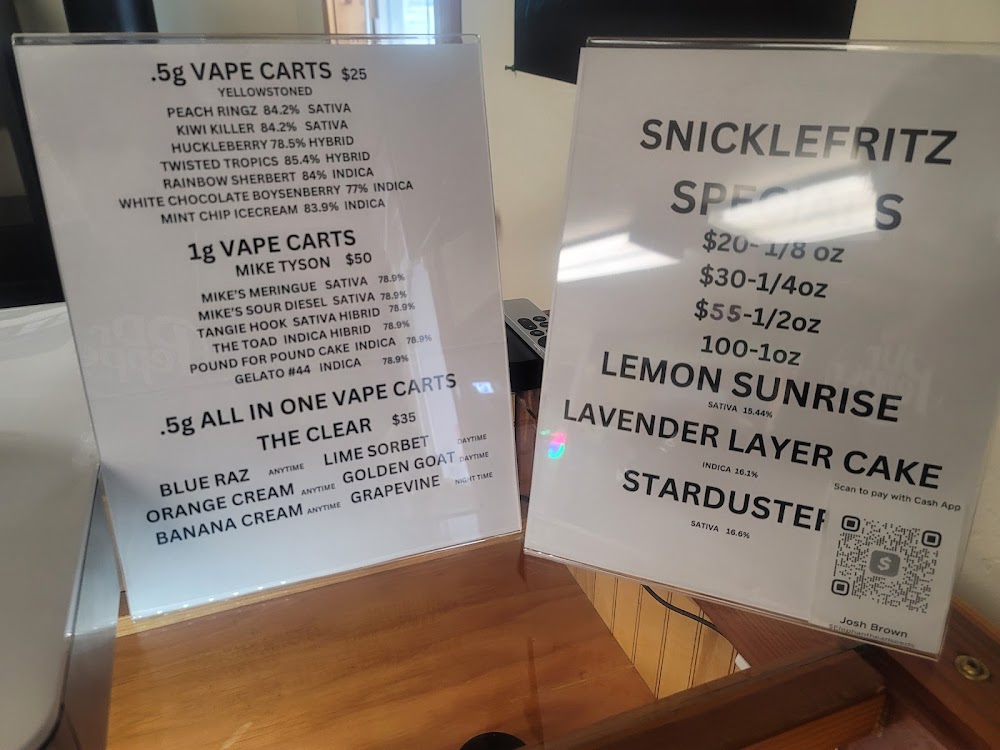 .5g VAPE CARTS $25
YELLOWSTONED
PEACH RINGZ 84.2% SATIVA
KIWI KILLER 84.2% SATIVA
HUCKLEBERRY 78.5% HYBRID
TWISTED TROPICS 85.4% HYBRID
RAINBOW SHERBERT 84% INDICA
WHITE CHOCOLATE BOYSENBERRY 77% INDICA
MINT CHIP ICECREAM 83.9% INDICA
1g VAPE CARTS
MIKE TYSON $50
MIKE'S MERINGUE SATIVA 78.9%
MIKE'S SOUR DIESEL SATIVA 78.9%
TANGIE HOOK SATIVA HIBRID 78.9%
THE TOAD INDICA HIBRID 78.9%
POUND FOR POUND CAKE INDICA 78.9%
GELATO #44 INDICA 78.9%
.5g ALL IN ONE VAPE CARTS
THE CLEAR $35
BLUE RAZ ANYTIME LIME SORBET DAYTIME
ORANGE CREAM ANYTIME GOLDEN GOAT DAYTIME
BANANA CREAM ANYTIME GRAPEVINE NIGHT TIME
SNICKLEFRITZ
SPECIALS
$20-1/8 oz
$30-1/4oz
$55-1/2oz
100-1oz
LEMON SUNRISE
SATIVA 15.44%
LAVENDER LAYER CAKE
INDICA 16.1%
STARDUSTER
SATIVA 16.6%
Scan to pay with Cash App
$
Josh Brown